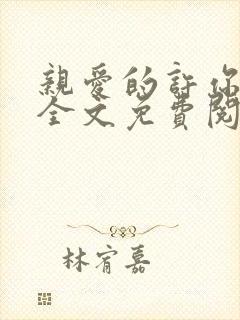 親愛的許你
全文免費閱
林宥嘉